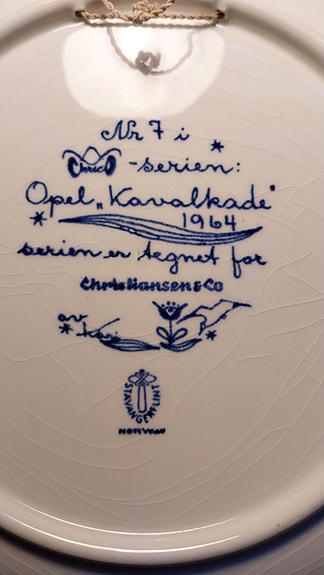 Nr 7 i
ChriCo -serien:
Opel „Kavalkade"
1964
serien er tegnet for
Christiansen & Co
av
Kari
STAVANGERFLINT
NORWAY